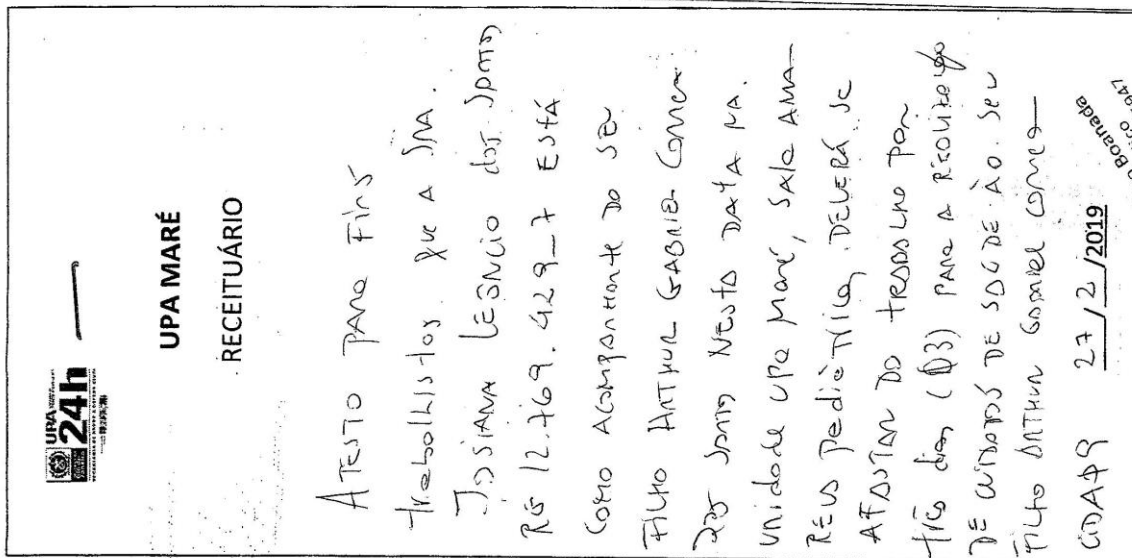 UPA
24h
UPA MARÉ
RECEITUÁRIO
ATESTO PARA FINS
trabalhistos que A SRA.
JOSIANA LEONCIO dos SANTOS
RG 12.769.429_7 ESTÁ
COMO ACOMPANHANTE DO SEU
FILHO ARTHUR GABRIEL CORREA
DOS SANTOS NESTA DATA NA
unidade UPA Maré, SALA AMA-
RELA pediátrica, DEVERÁ SE
AFASTAR DO TRABALHO POR
três dias (03) PARA A
DE CUIDADOS DE SAÚDE AO SEU
FILHO ARTHUR GABRIEL CORREA
27/2/2019
Boanada